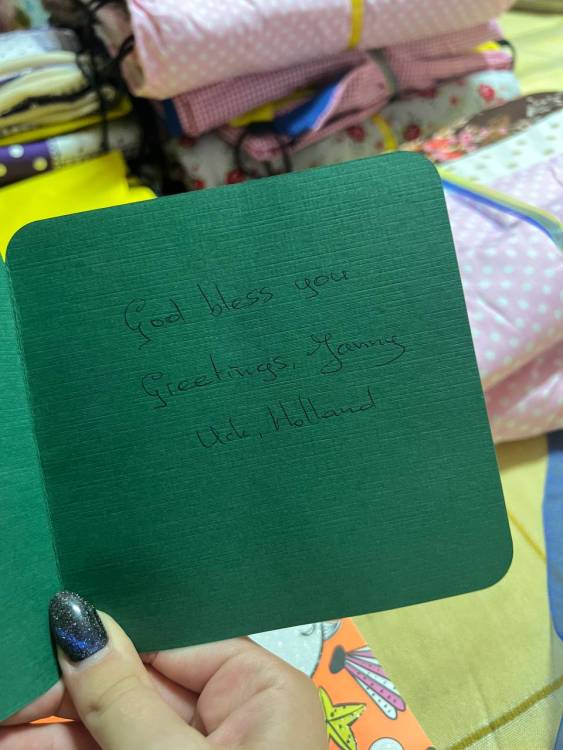 God bless you
Greetings, Janny
Urk, Holland